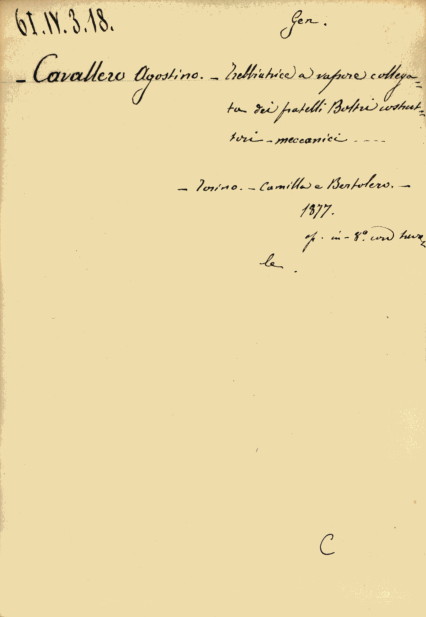 61.IV.3.18.
Gen.
- Cavallero Agostino. - Trebbiatrice a vapore collega-
ta dei fratelli Boltri costrut-
tori - meccanici ....
- Torino. - Camilla e Bertolero. -
1877.
op. in-8º con tavo-
le.
C